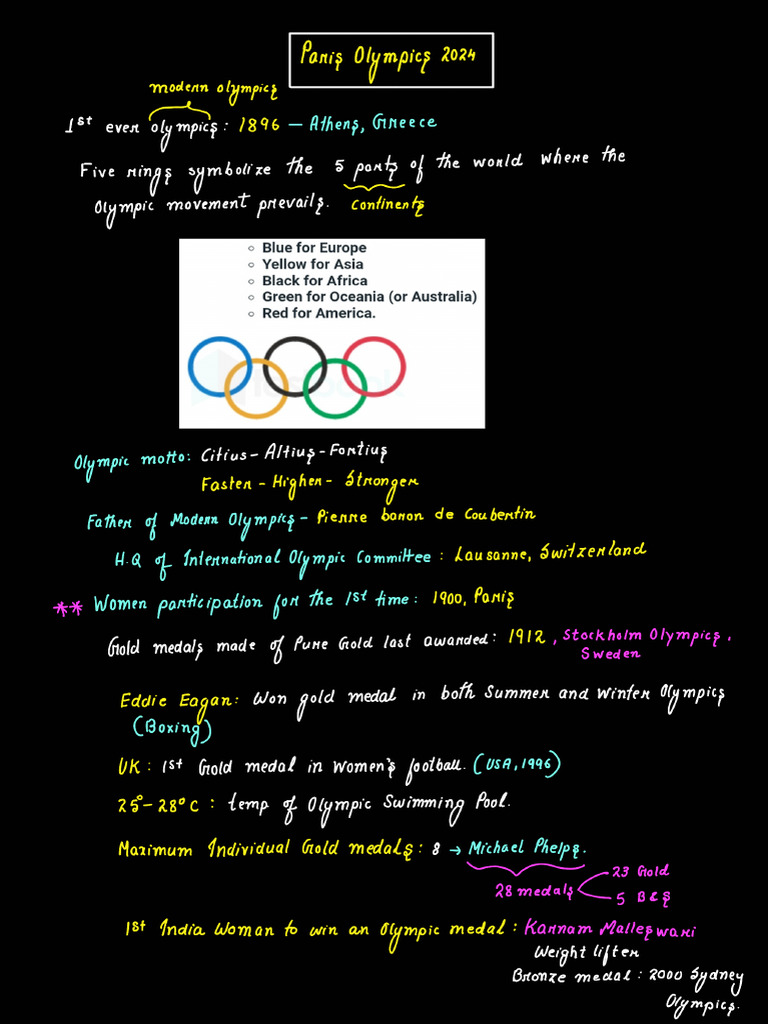 Paris Olympics 2024
modern olympics
1st ever olympics: 1896 – Athens, Greece
Five rings symbolize the 5 parts of the world where the
Olympic movement prevails. continents
Blue for Europe
Yellow for Asia
Black for Africa
Green for Oceania (or Australia)
Red for America.
Olympic motto: Citius - Altius - Fortius
Faster - Higher - Stronger
Father of Modern Olympics - Pierre baron de Coubertin
H.Q of International Olympic Committee : Lausanne, Switzerland
** Women participation for the 1st time: 1900, Paris
Gold medals made of Pure Gold last awarded: 1912, Stockholm Olympics,
Sweden
Eddie Eagan: Won gold medal in both Summer and Winter Olympics
(Boxing)
UK : 1st Gold medal in Women's football. (USA, 1996)
25° - 28° C : temp of Olympic Swimming Pool.
Maximum Individual Gold medals : 8 → Michael Phelps.
28 medals
23 Gold
5 B & S
1st India Woman to win an Olympic medal : Karnam Malleswari
Weight lifter
Bronze medal : 2000 Sydney
Olympics.